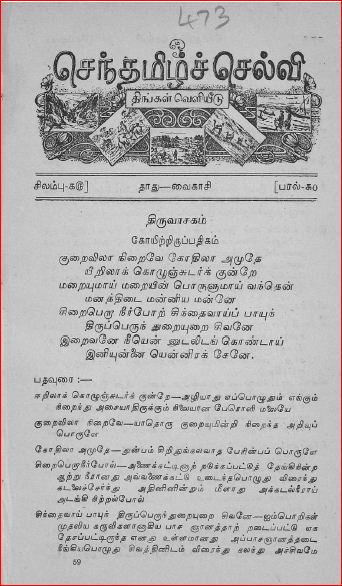 473
செந்தமிழ்ச் செல்வி
திங்கள் வெளியீடு
தாது—வைகாசி
திருவாசகம்
கோயிற்றிருப்பதிகம்
குறைவிலா நிறைவே கோதிலா அமுதே
யீறிலாக் கொழுஞ்சுடர்க் குன்றே
மறையுமாய் மறையின் பொருளுமாய் வந்தென்
மனத்திடை மன்னிய மன்னே
சிறைபெறா நீர்போற் சிந்தைவாய்ப் பாயுந்
திருப்பெருந் துறையுறை சிவனே
இறைவனே நீயென் னுடலிடங் கொண்டாய்
இனியுன்னை யென்னிரக் கேனே.
பதவுரை :—
ஈறிலாக் கொழுஞ்சுடர்க் குன்றே—அழியாது எப்பொழுதும் எங்கும்
நிறைந்து அசையாதிருக்கும் நிலையான பேரொளி மலையே
குறைவிலா நிறைவே—யாதொரு குறையுமின்றி நிறைந்த அறிவுப்
பொருளே
கோதிலா அமுதே—துன்பம் சிறிதுங்கலவாத பேரின்பப் பொருளே
சிறைபெறாநீர்போல்—அணைக்கட்டினாற் தடுக்கப்பட்டுத் தேங்கிநின்ற
ஆற்று நீரானது அவ்வணைக்கட்டு உடைந்தபொழுது விரைந்து
கடலைச்சேர்ந்து அதினின்றும் மீளாது அக்கடல்நீராய்
அடங்கி நிற்றல்போல்
சிந்தைவாய் பாயுந் திருப்பெருந்துறையுறை சிவனே—ஐம்பொறிகள்
முதலிய கருவிகளானாகிய பாச ஞானத்தாற் றடைப்பட்டு ஏக
தேசப்பட்டிருந்த எனது உள்ளமானது அப்பாசஞானத்தடை
நீங்கியபொழுது சிவத்தினிடம் விரைந்து கலந்து அச்சிவமே
59